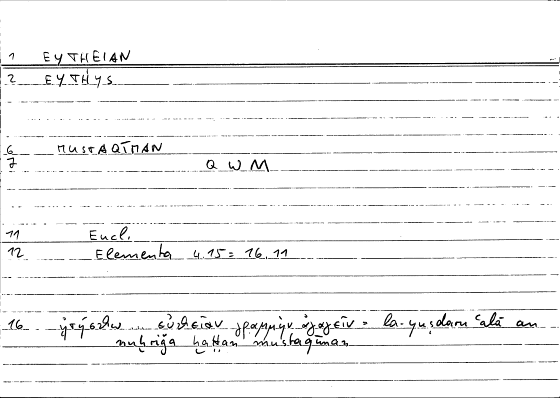 1 EYTHEIAN
2 EYTHYS
6 MUSTAQĪMAN
7 QWM
11 Eucl.
12 Elementa 4.15 = 16,11
16 ᾐτήσθω ... εὐθεῖαν γραμμὴν ἀγαγεῖν = la-yuṣdaru ʿalā an
nuḫriǧa ḫaṭṭan mustaqīman